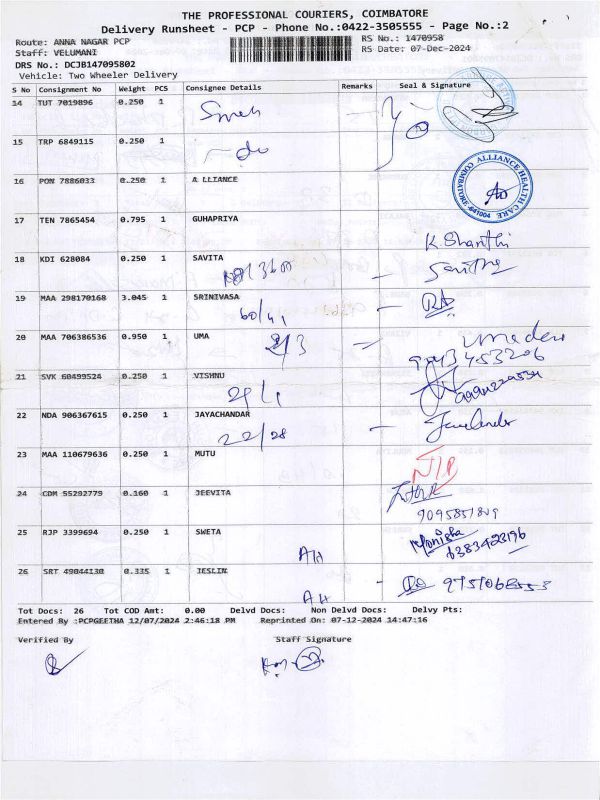 THE PROFESSIONAL COURIERS, COIMBATORE
Delivery Runsheet - PCP - Phone No.:0422-3505555 - Page No.:2
Route: ANNA NAGAR PCP RS No.: 1470958
Staff: VELUMANI RS Date: 07-Dec-2024
DRS No.: DCJB147095802
Vehicle: Two Wheeler Delivery
S No Consignment No Weight PCS Consignee Details Remarks Seal & Signature
14 TUT 7019896 0.250 1
15 TRP 6849115 0.250 1 do
16 PON 7886033 0.250 1 A LLIANCE
ALLIANCE HEALTH CARE COIMBATORE-641004
17 TEN 7865454 0.795 1 GUHAPRIYA
K. Shanthi
18 KDI 628084 0.250 1 SAVITA
Savitha
19 MAA 298170168 3.045 1 SRINIVASA
60/41
20 MAA 706386536 0.950 1 UMA
21 SVK 60499524 0.250 1 VISHNU
22 NDA 906367615 0.250 1 JAYACHANDAR
22/28
23 MAA 110679636 0.250 1 MUTU
24 CDM 55292779 0.160 1 JEEVITA
25 RJP 3399694 0.250 1 SWETA
Monisha
AH 6383423196
26 SRT 49044130 0.335 1 JESLIN
AH
Tot Docs: 26 Tot COD Amt: 0.00 Delvd Docs: Non Delvd Docs: Delvy Pts:
Entered By :PCPGEETHA 12/07/2024 2:46:18 PM Reprinted On: 07-12-2024 14:47:16
Verified By Staff Signature